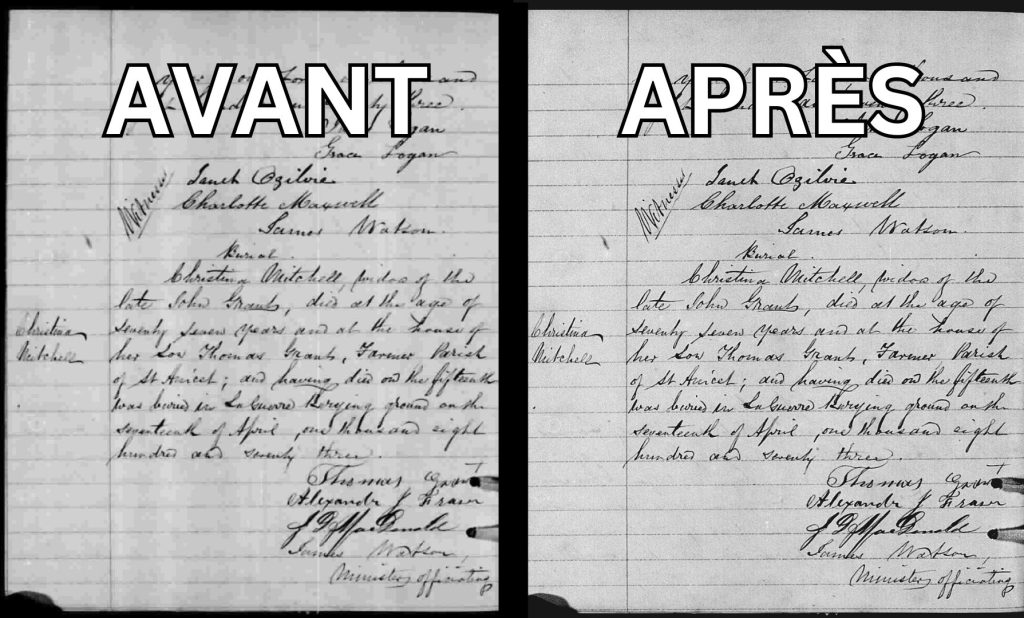 AVANT
and
three
Logan
Grace Logan
Witnesses
Janet Ogilvie
Charlotte Maxwell
James Watson.
Burial.
Christina Mitchell, widow of the
late John Grant, died at the age of
Christina
Mitchell
seventy seven years and at the house of
her son Thomas Grant, Farmer Parish
of St Anicet; and having died on the fifteenth
was buried in LaGuerre Burying ground on the
seventeenth of April, one thousand eight
hundred and seventy three.
Thomas Grant
Alexander J Fraser
J MacDonald
James Watson,
Minister officiating
APRÈS
and
three.
Logan
Grace Logan
Witnesses
Janet Ogilvie
Charlotte Maxwell
James Watson.
Burial.
Christina Mitchell, widow of the
late John Grant, died at the age of
Christina
Mitchell
seventy seven years and at the house of
her son Thomas Grant, Farmer Parish
of St Anicet; and having died on the fifteenth
was buried in LaGuerre Burying ground on the
seventeenth of April, one thousand eight
hundred and seventy three.
Thomas Grant
Alexander J Fraser
J MacDonald
James Watson,
Minister officiating